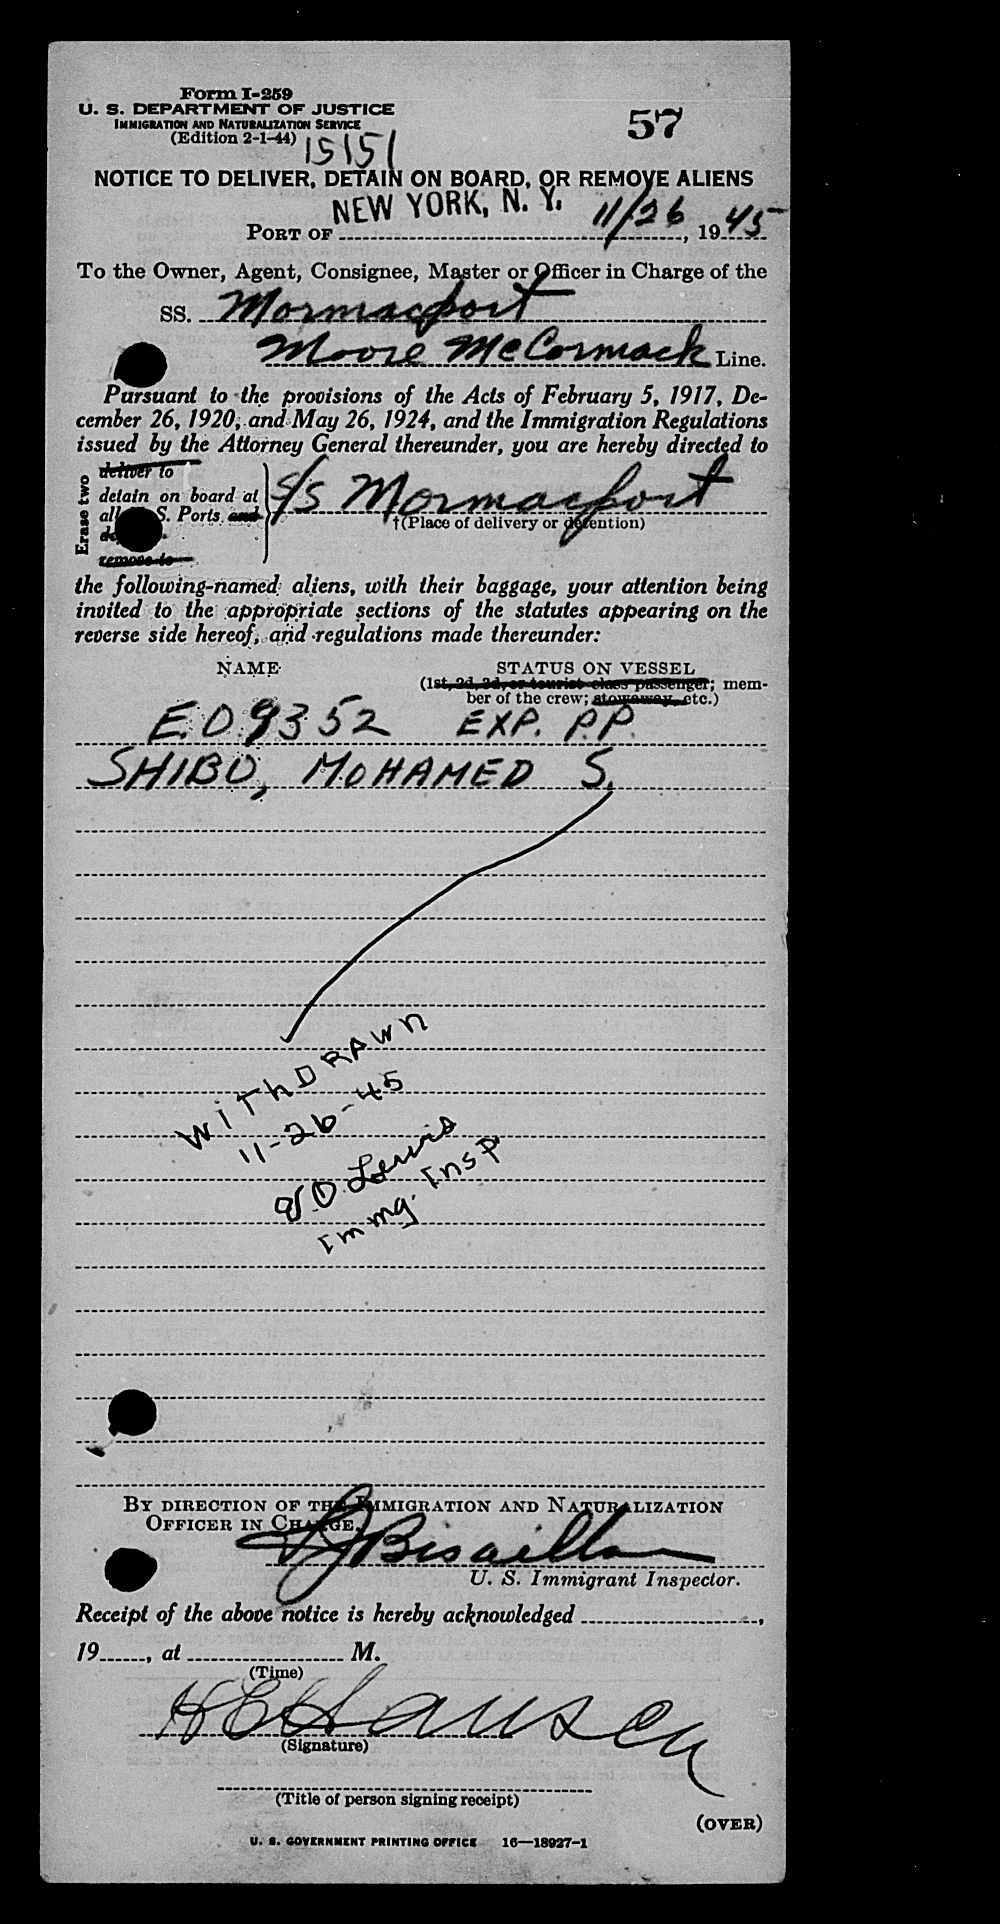 Form I-259
U. S. DEPARTMENT OF JUSTICE
IMMIGRATION AND NATURALIZATION SERVICE
(Edition 2-1-44)
57
15151
NOTICE TO DELIVER, DETAIN ON BOARD, OR REMOVE ALIENS
NEW YORK, N. Y.
PORT OF 11/26, 1945
To the Owner, Agent, Consignee, Master or Officer in Charge of the
SS. Mormacport
Moore McCormack Line.
Pursuant to the provisions of the Acts of February 5, 1917, De-
cember 26, 1920, and May 26, 1924, and the Immigration Regulations
issued by the Attorney General thereunder, you are hereby directed to
Erase two
deliver to
detain on board at
all S. Ports and
remove to
S/S Mormacport
†(Place of delivery or detention)
the following-named aliens, with their baggage, your attention being
invited to the appropriate sections of the statutes appearing on the
reverse side hereof, and regulations made thereunder:
NAME STATUS ON VESSEL
(1st, 2d, 3d, or tourist class passenger; mem-
ber of the crew; stowaway, etc.)
E.O. 9352 EXP. P.P.
SHIBU, MOHAMED S.
WITHDRAWN
11-26-45
Lewis
Immg. Insp
BY DIRECTION OF THE IMMIGRATION AND NATURALIZATION
OFFICER IN CHARGE,
Bisaillon
U. S. Immigrant Inspector.
Receipt of the above notice is hereby acknowledged ,
19 , at M.
(Time)
HE Hansen
(Signature)
(Title of person signing receipt)
(OVER)
U. S. GOVERNMENT PRINTING OFFICE 16—18927-1